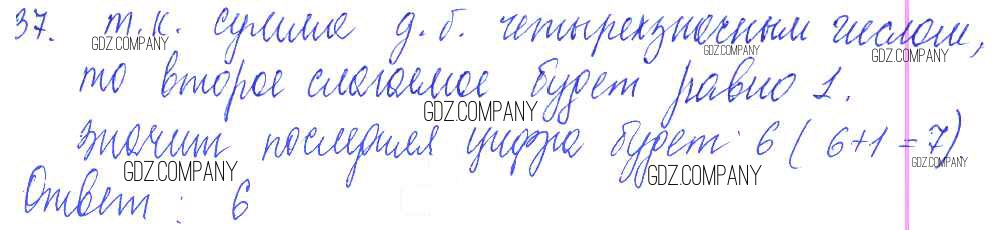 37. т.к. сумма д.б. четырехзначным числом,
GDZ.COMPANY GDZ.COMPANY GDZ.COMPANY
то второе слагаемое будет равно 1.
GDZ.COMPANY GDZ.COMPANY
значит последняя цифра будет: 6 (6+1=7)
GDZ.COMPANY GDZ.COMPANY
Ответ: 6